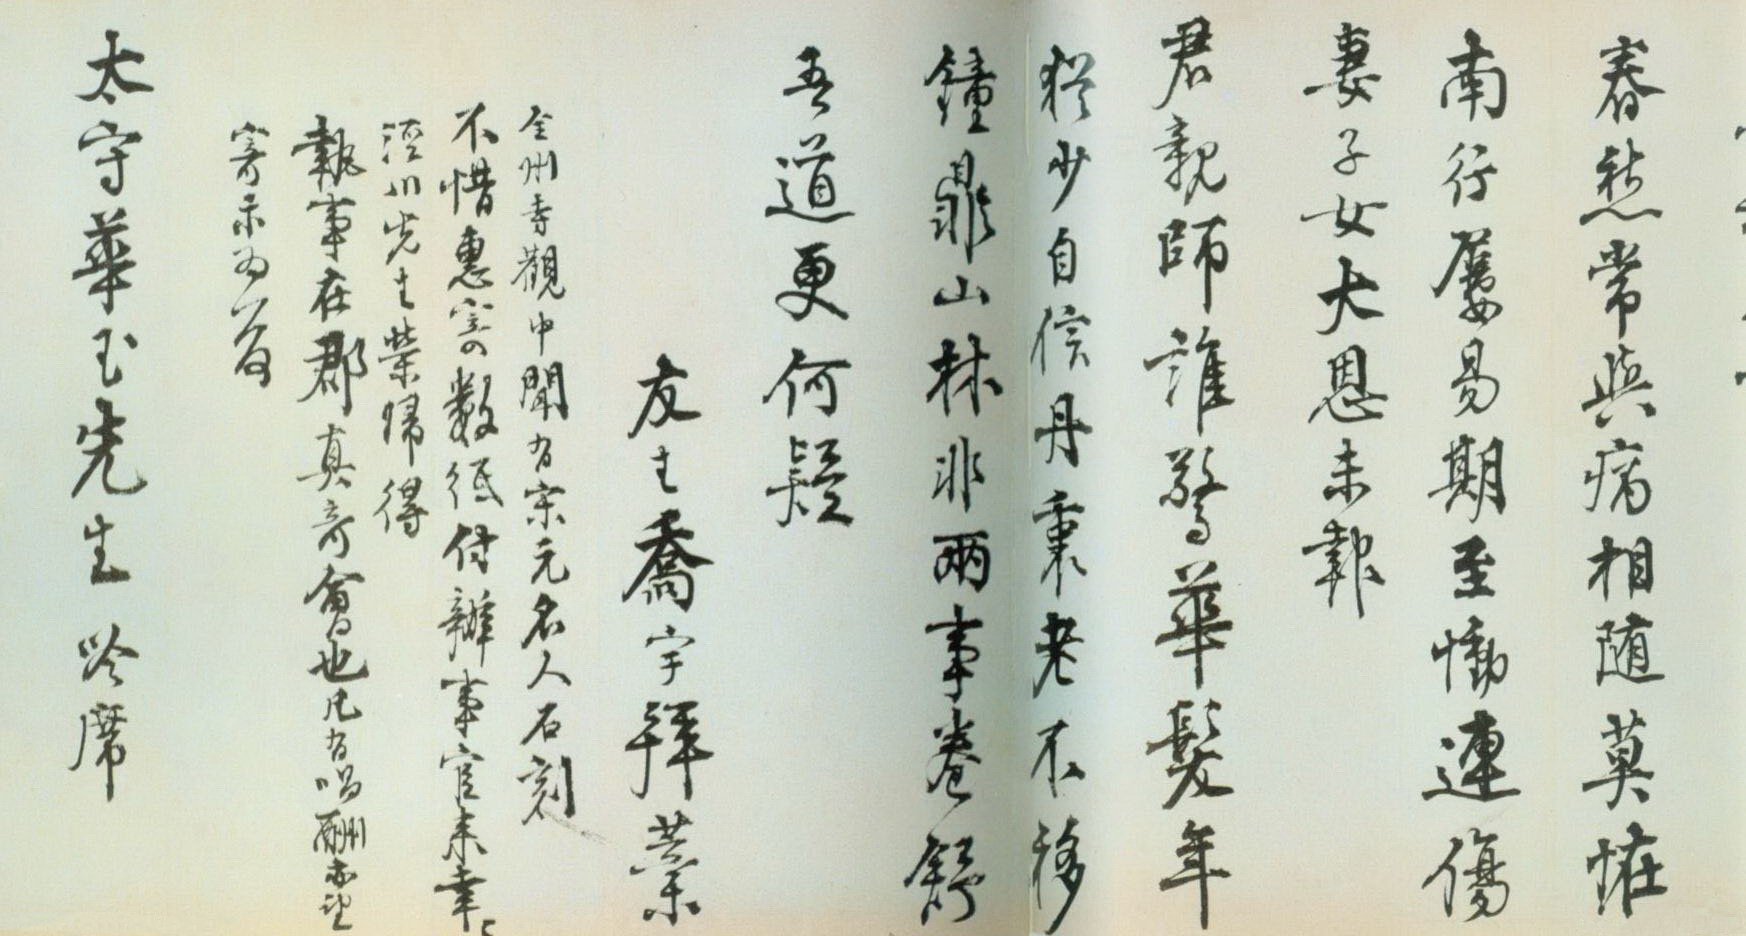 春愁常與病相隨莫怪
南行屢易期至慟連傷
妻子女大恩未報
君親師誰驚華髮年
猶少自信丹衷老不移
鐘鼎山林非兩事卷舒
吾道更何疑
友生喬宇拜藁
全州寺觀中聞有宋元名人石刻
不惜惠寄數紙付辦事官來幸
涇川先生榮歸得
執事在郡真奇會也凡有唱酬亦望
寄示為荷
太守華玉先生吟席